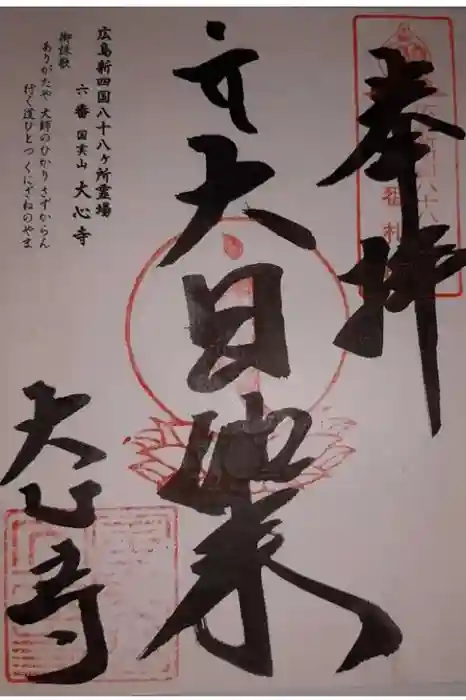 奉拝
大日如来
大心寺
広島新四国八十八ヶ所霊場
六番 国実山 大心寺
御詠歌
ありがたや 大師のひかり さずからん
行く道ひとつ くにざねのやま